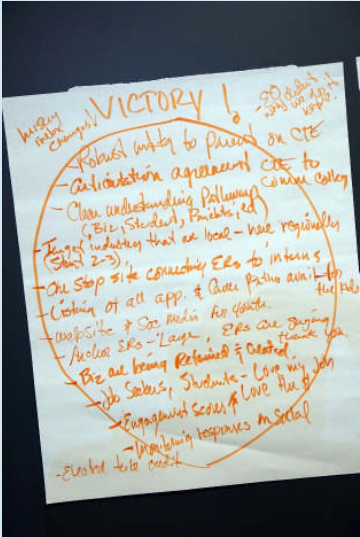 VICTORY!
history makes changes!
- Robust mktg to parent on CTE
- articulation agreement CTE to Comm College
- Clear understanding Pathways
(Biz, Student, Parents, ed)
- Target industry that are local - here regionally
(Start 2-3)
- One stop site connecting ERs to interns
- Listing of all app. & Career Paths avail to the kids
- website & Soc Media for youth.
- Anchor ERs - Large, ERs are saying thank you.
- Biz are being Retained & Created
- Job Seekers, Students - Love my Job
- Engagement scores Love the
- Monitoring responses on Social
- Elected take credit